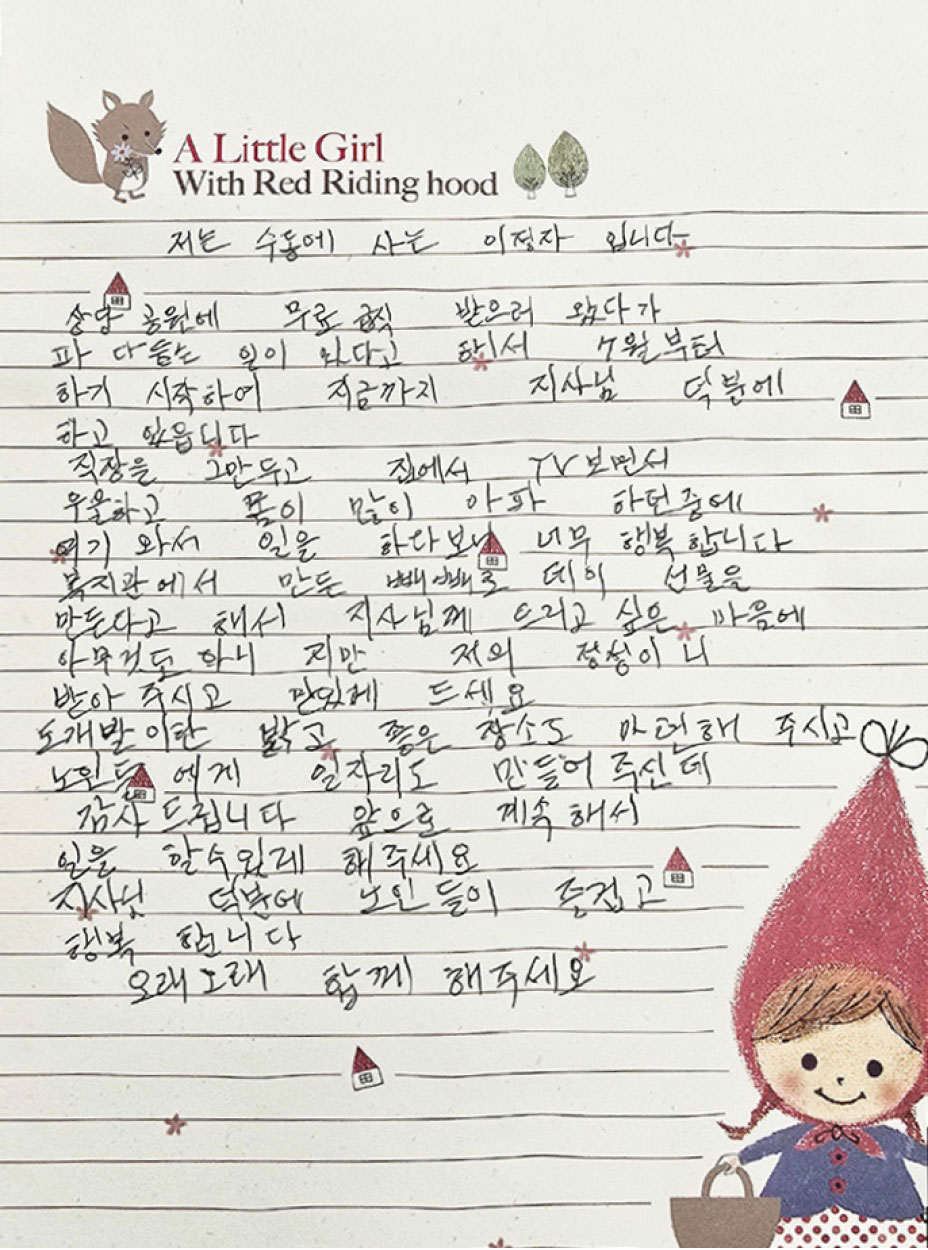 A Little Girl
With Red Riding hood
저는 수동에 사는 이정자 입니다
상당 공원에 무료 급식 받으러 왔다가
파 다듬는 일이 있다고 해서 7월부터
하기 시작하여 지금까지 지사님 덕분에
하고 있읍니다
직장을 그만두고 집에서 TV보면서
우울하고 몸이 많이 아파 하던중에
여기 와서 일을 하다보니 너무 행복 합니다
복지관에서 만든 빼빼로 데이 선물을
만든다고 해서 지사님께 드리고 싶은 마음에
아무것도 아니 지만 저의 정성이니
받아 주시고 맛있게 드세요
도개발이란 밝고 좋은 장소도 마련해 주시고
노인들 에게 일자리도 만들어 주신데
감사 드립니다 앞으로 계속 해서
일을 할수있게 해주세요
지사님 덕분에 노인들이 즐겁고
행복 합니다
오래오래 함께 해주세요